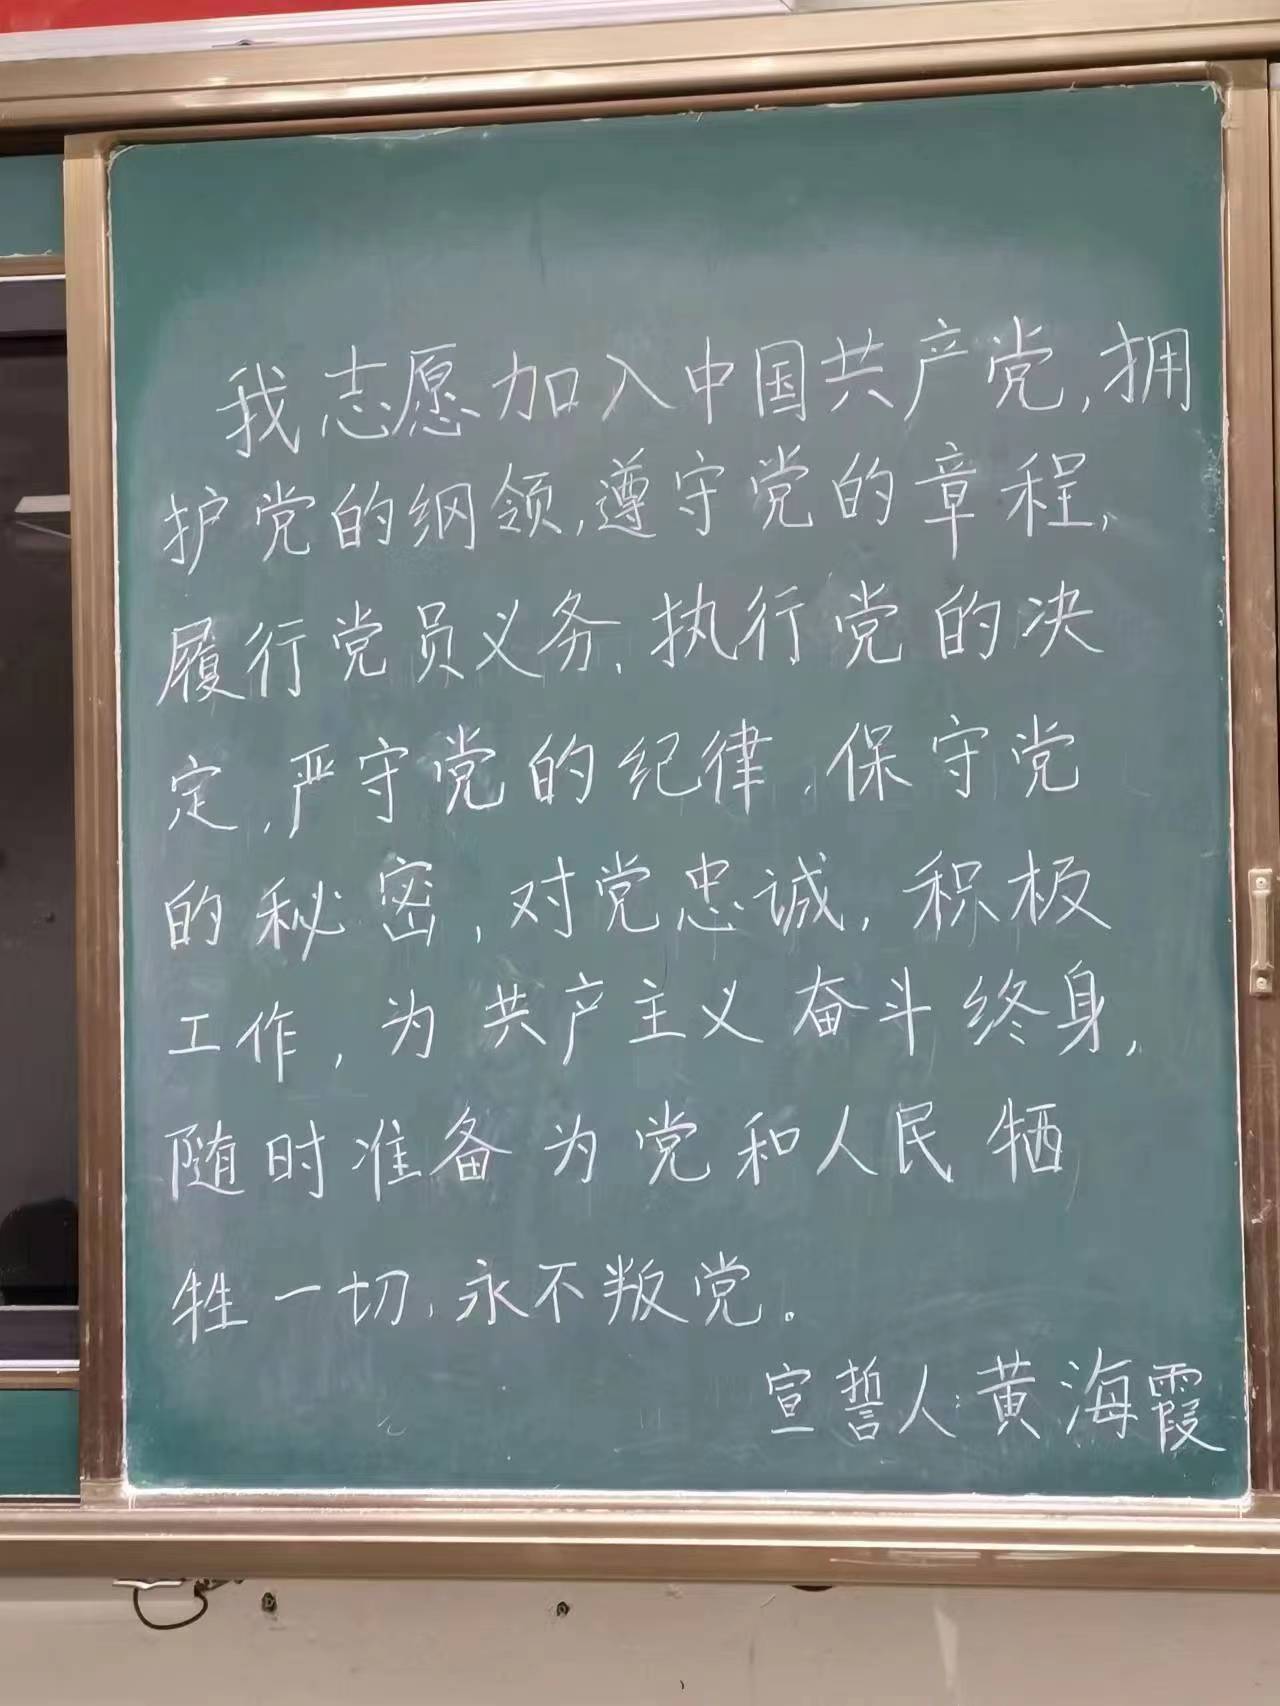 我志愿加入中国共产党,拥
护党的纲领,遵守党的章程,
履行党员义务,执行党的决
定,严守党的纪律,保守党
的秘密,对党忠诚,积极
工作,为共产主义奋斗终身,
随时准备为党和人民牺
牲一切,永不叛党。
宣誓人:黄海霞